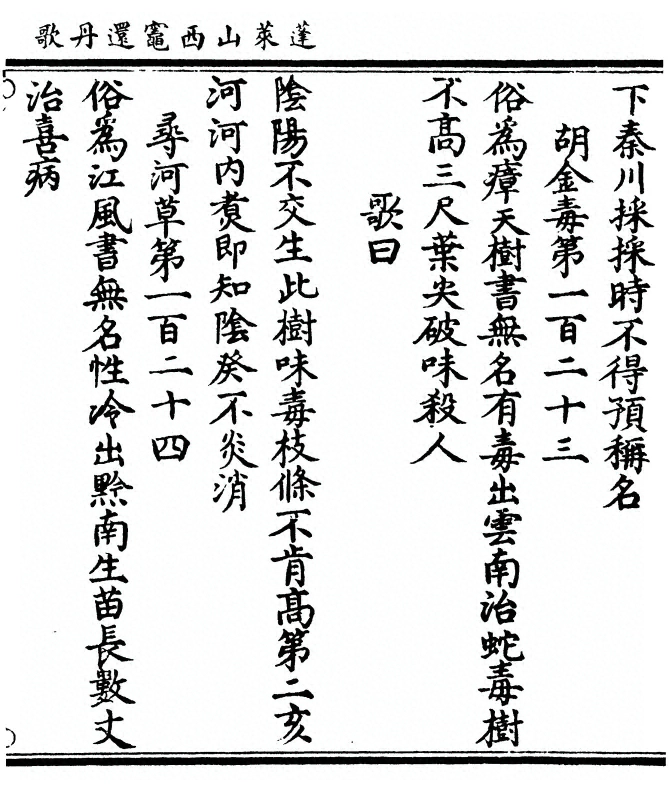 蓬萊山西竈還丹歌
下秦川採採時不得預稱名
胡金毒第一百二十三
俗為瘴天樹書無名有毒出雲南治蛇毒樹
不高三尺葉尖破味殺人
歌曰
陰陽不交生此樹味毒枝條不肯高第二亥
河河內煑即知陰癸不炎消
尋河草第一百二十四
俗為江風書無名性冷出黔南生苗長數丈
治喜病